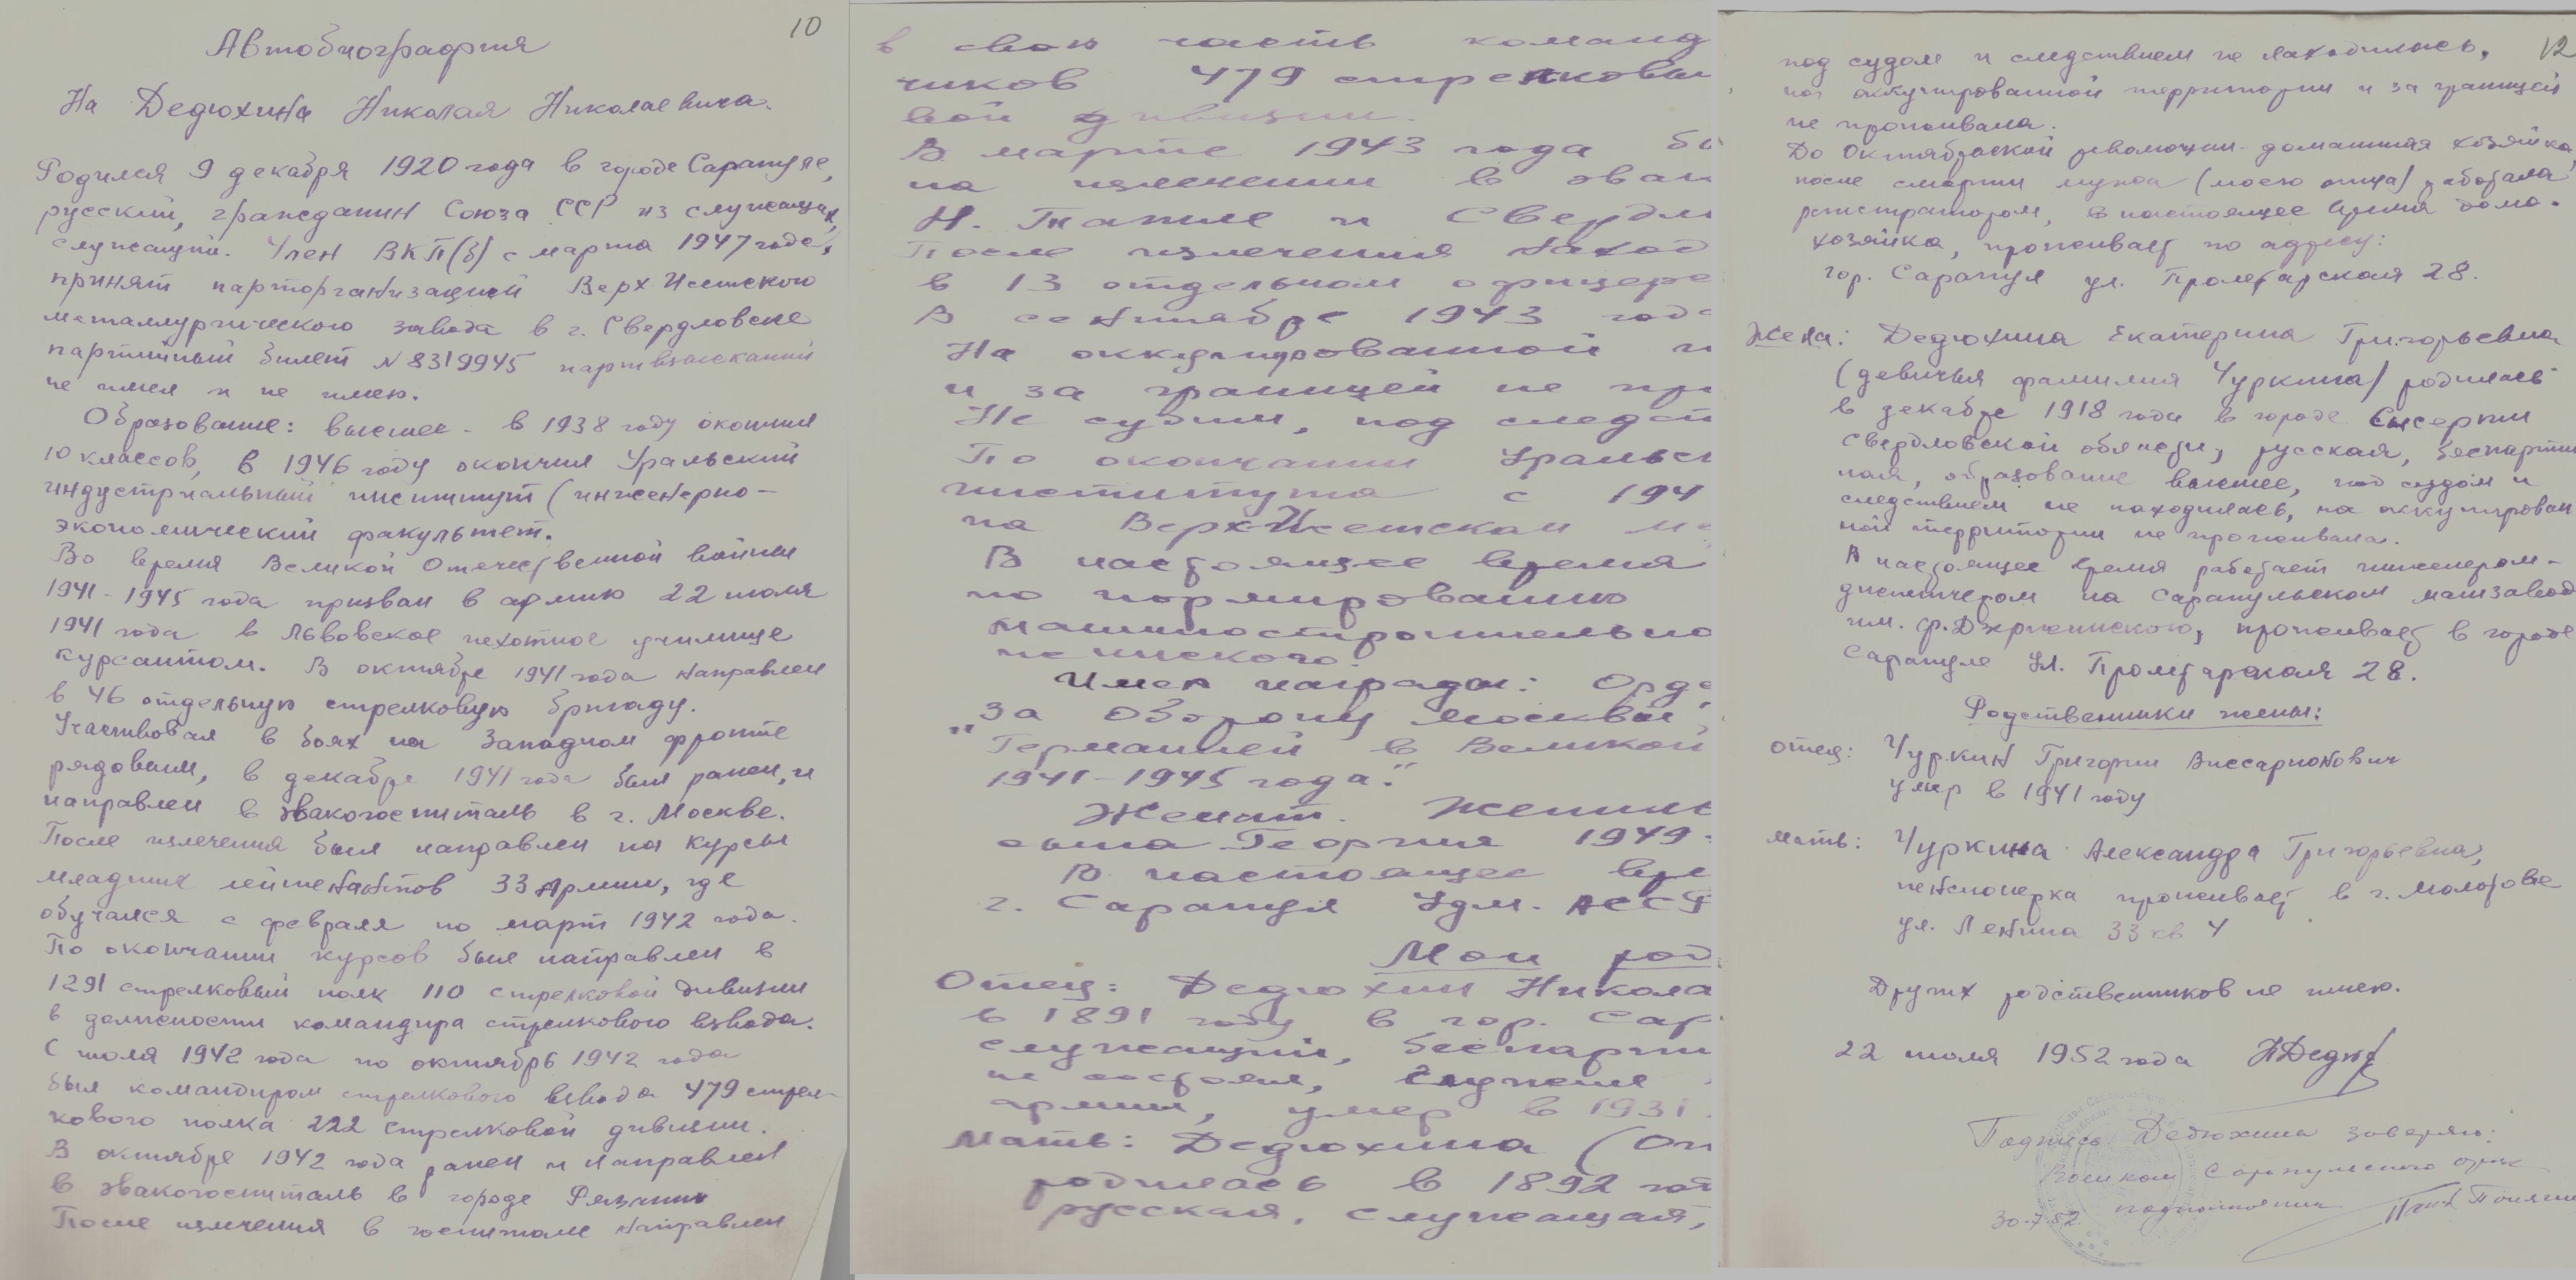 10
Автобиография
На Дедюхина Николая Николаевича.
Родился 9 декабря 1920 года в городе Сарапуле,
русский, гражданин Союза ССР из служащих,
служащий. Член ВКП(б) с марта 1947 года,
принят парторганизацией Верх Исетского
металлургического завода в г. Свердловске
партийный билет N 8319945 партвзысканий
не имел и не имею.
Образование: высшее - в 1938 году окончил
10 классов, в 1946 году окончил Уральский
индустриальный институт (инженерно-
экономический факультет.
Во время Великой Отечественной войны
1941-1945 года призван в армию 22 июля
1941 года в Львовское пехотное училище
курсантом. В октябре 1941 года направлен
в 46 отдельную стрелковую бригаду.
Участвовал в боях на Западном фронте
рядовым, в декабре 1941 года был ранен, и
направлен в эвакогоспиталь в г. Москве.
После излечения был направлен на курсы
младших лейтенантов 33 Армии, где
обучался с февраля по март 1942 года.
По окончании курсов был направлен в
1291 стрелковый полк 110 стрелковой дивизии
в должности командира стрелкового взвода.
С июля 1942 года по октябрь 1942 года
был командиром стрелкового взвода 479 стрел-
кового полка 222 стрелковой дивизии.
В октябре 1942 года ранен и направлен
в эвакогоспиталь в городе Рязани
После излечения в госпитале направлен
в свою часть команд
чиков 479 стрелковы
вой дивизии.
В марте 1943 года бы
на излечении в эвак
Н. Тагиле и Свердл
После излечения наход
в 13 отдельном офицере
В сентябре 1943 года
На оккупированной т
и за границей не пр
Не судим, под следст
По окончании Уральс
института с 194
на Верх-Исетском ме
В настоящее время
по нормированию
машиностроительно
жинского.
Имею награды: Орде
"За оборону Москвы",
Германией в Великой
1941-1945 года".
Женат. Женил
сына Георгия 1949
В настоящее вре
г. Сарапул Удм. АССР
Мои род
Отец: Дедюхин Никола
в 1891 году в гор. Сар
служащий, беспарти
не состоял, служил
армии, умер в 1931
Мать: Дедюхина (Оп
родилась в 1892 год
русская, служащая,
12
под судом и следствием не находилась,
на оккупированной территории и за границей
не проживала.
До Октябрьской революции - домашняя хозяйка,
после смерти мужа (моего отца) работала
регистратором, в настоящее время домо-
хозяйка, проживает по адресу:
гор. Сарапул ул. Пролетарская 28.
Жена: Дедюхина Екатерина Григорьевна
(девичья фамилия Чуркина) родилась
в декабре 1918 года в городе Сысерти
Свердловской области, русская, беспартий
ная, образование высшее, под судом и
следствием не находилась, на оккупирован
ной территории не проживала.
В настоящее время работает инженером-
диспетчером на Сарапульском машзаводе
им. ф. Дзержинского, проживает в городе
Сарапуле ул. Пролетарская 28.
Родственники жены:
отец: Чуркин Григорий Виссарионович
умер в 1941 году
мать: Чуркина Александра Григорьевна,
пенсионерка проживает в г. Молотове
ул. Ленина 33 кв 4
Других родственников не имею.
22 июля 1952 года НДедюх
Подпись Дедюхина заверяю:
Военком Сарапульского
30.7.52. подполковник